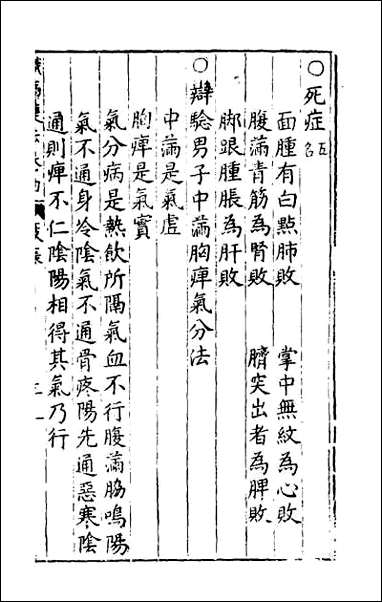 ○死症五
面腫有白點肺敗　掌中無紋為心敗
腹滿青筋為腎敗　臍突出者為脾敗
脚跟腫脹為肝敗
○辯驗男子中滿胸痺氣分法
中滿是氣虛
胸痺是氣實
氣分病是熱飲所隔氣血不行腹滿脇鳴陽
氣不通身冷陰氣不通骨疼陽先通惡寒陰
通則痺不仁陰陽相得其氣乃行